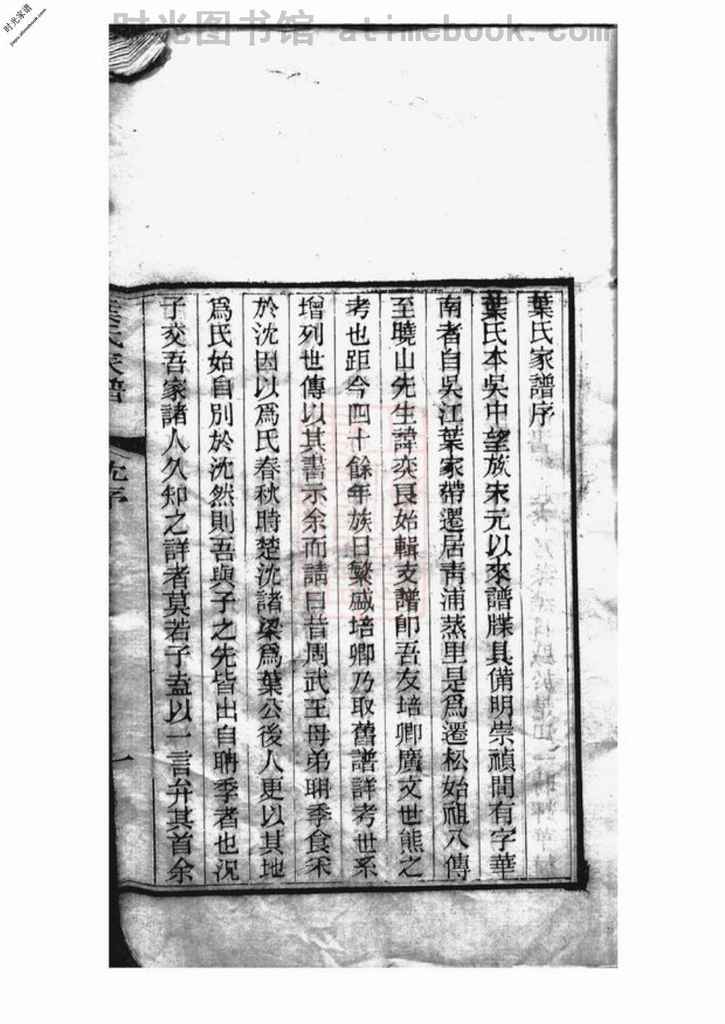 时光图书馆 atimebook.com
时光家谱
葉氏家譜序
葉氏本吳中望族宋元以來譜牒具備明崇禎間有字華
南者自吳江葉家帶遷居青浦蒸里是爲遷松始祖八傳
至曉山先生諱奕良始輯支譜卽吾友培卿廣文世熊之
考也距今四十餘年族日繁盛培卿乃取舊譜詳考世系
增列世傳以其書示余而請曰昔周武王母弟聃季食采
於沈因以爲氏春秋時楚沈諸梁爲葉公後人更以其地
爲氏始自別於沈然則吾與子之先皆出自聃季者也況
子交吾家諸人久知之詳者莫若子盍以一言弁其首余
葉氏家譜
沈序
一